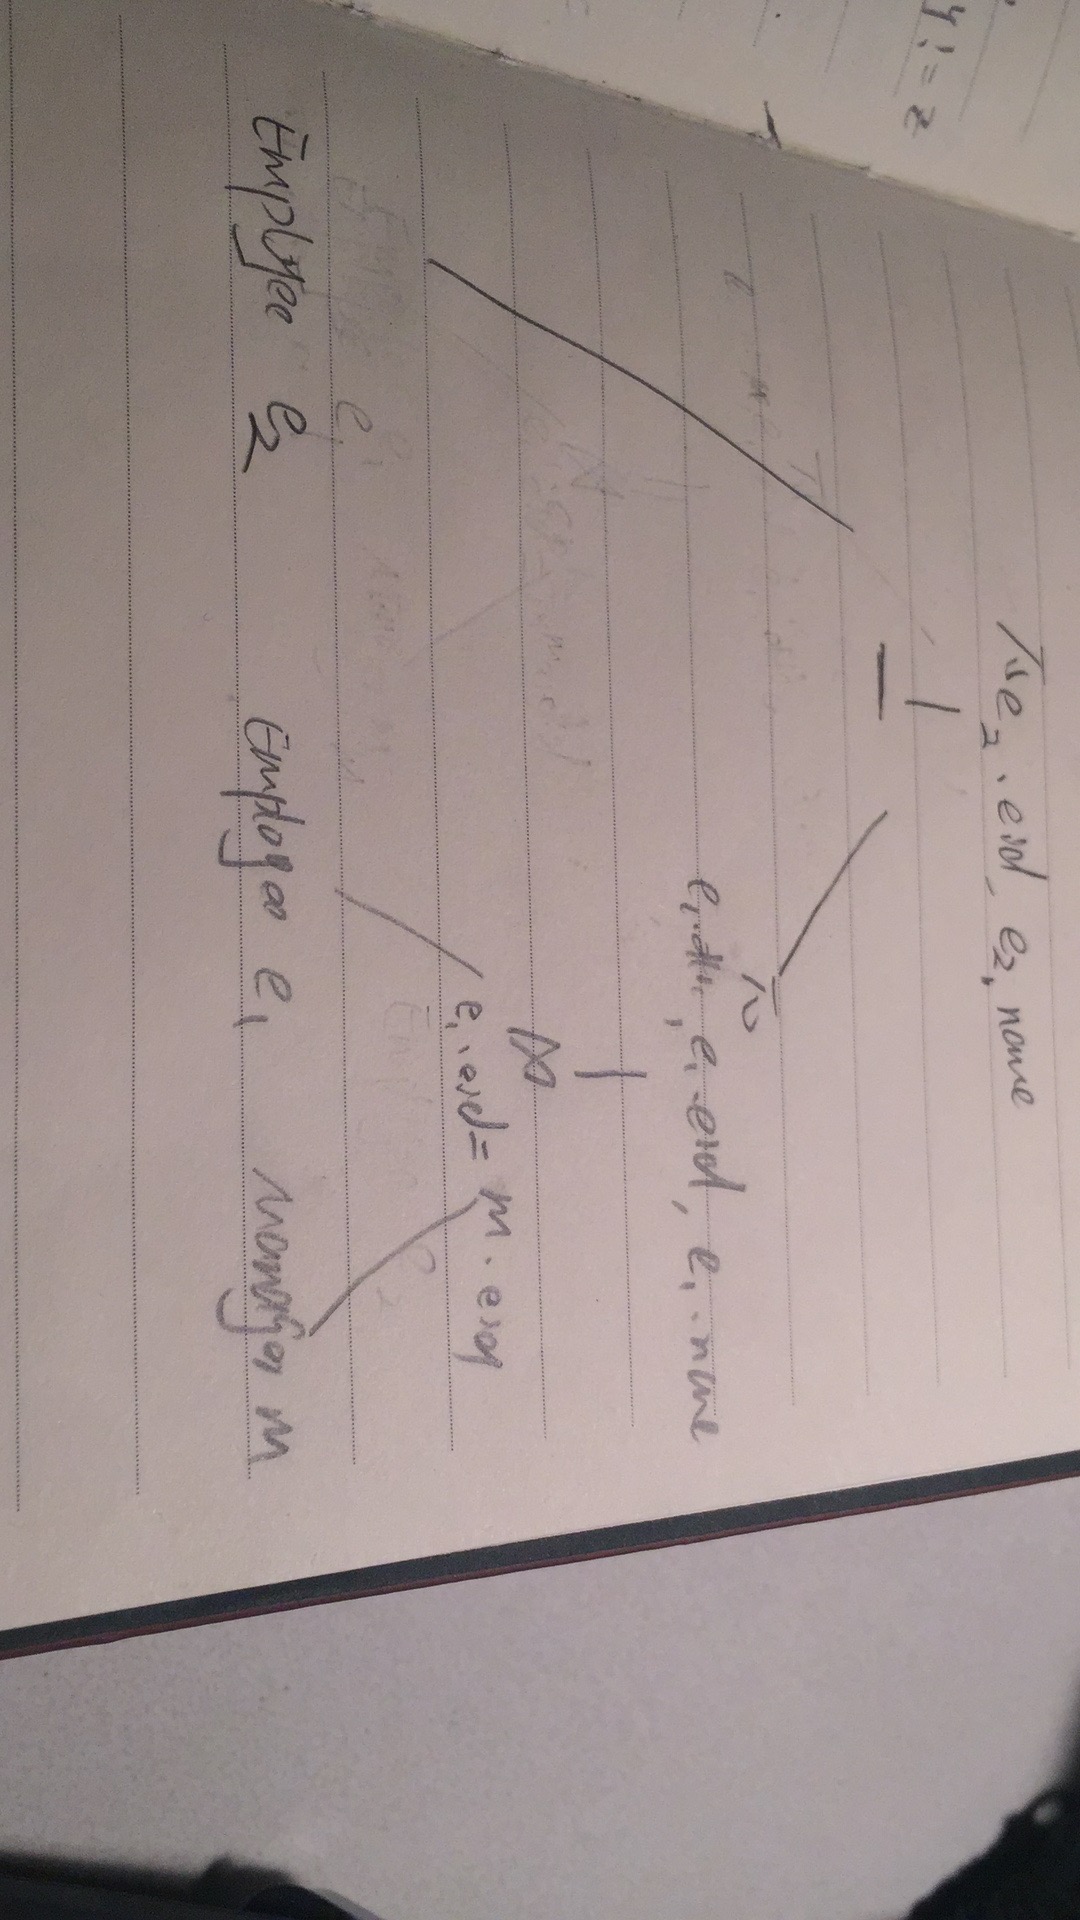 π e2.eid, e2.name
y != z
—
π
e1.eid, e1.name
⋈
e1.eid = m.eid
e1
Employee e2 Employee e1 Manager m